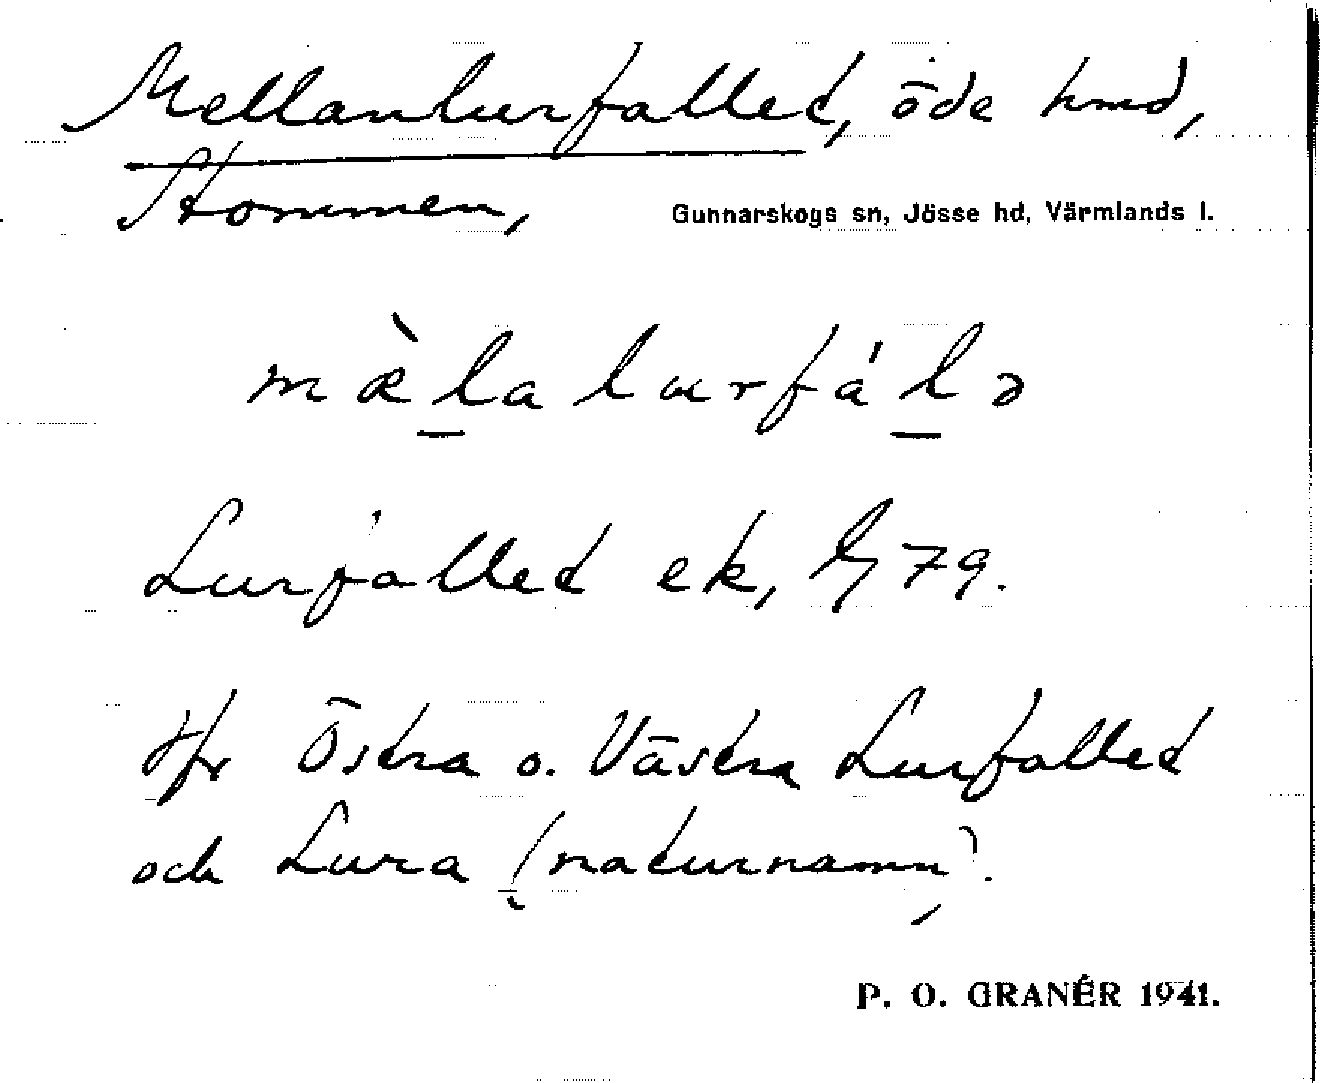 Mellanlurfallet, öde hmd,
Stommen,
Gunnarskogs sn, Jösse hd, Värmlands l.
mæ̀l̲alurfál̲ə
Lurfallet ek, 79.
Jfr Östra o. Västra Lurfallet
och Lura (naturnamn).
P. O. GRANÉR 1941.